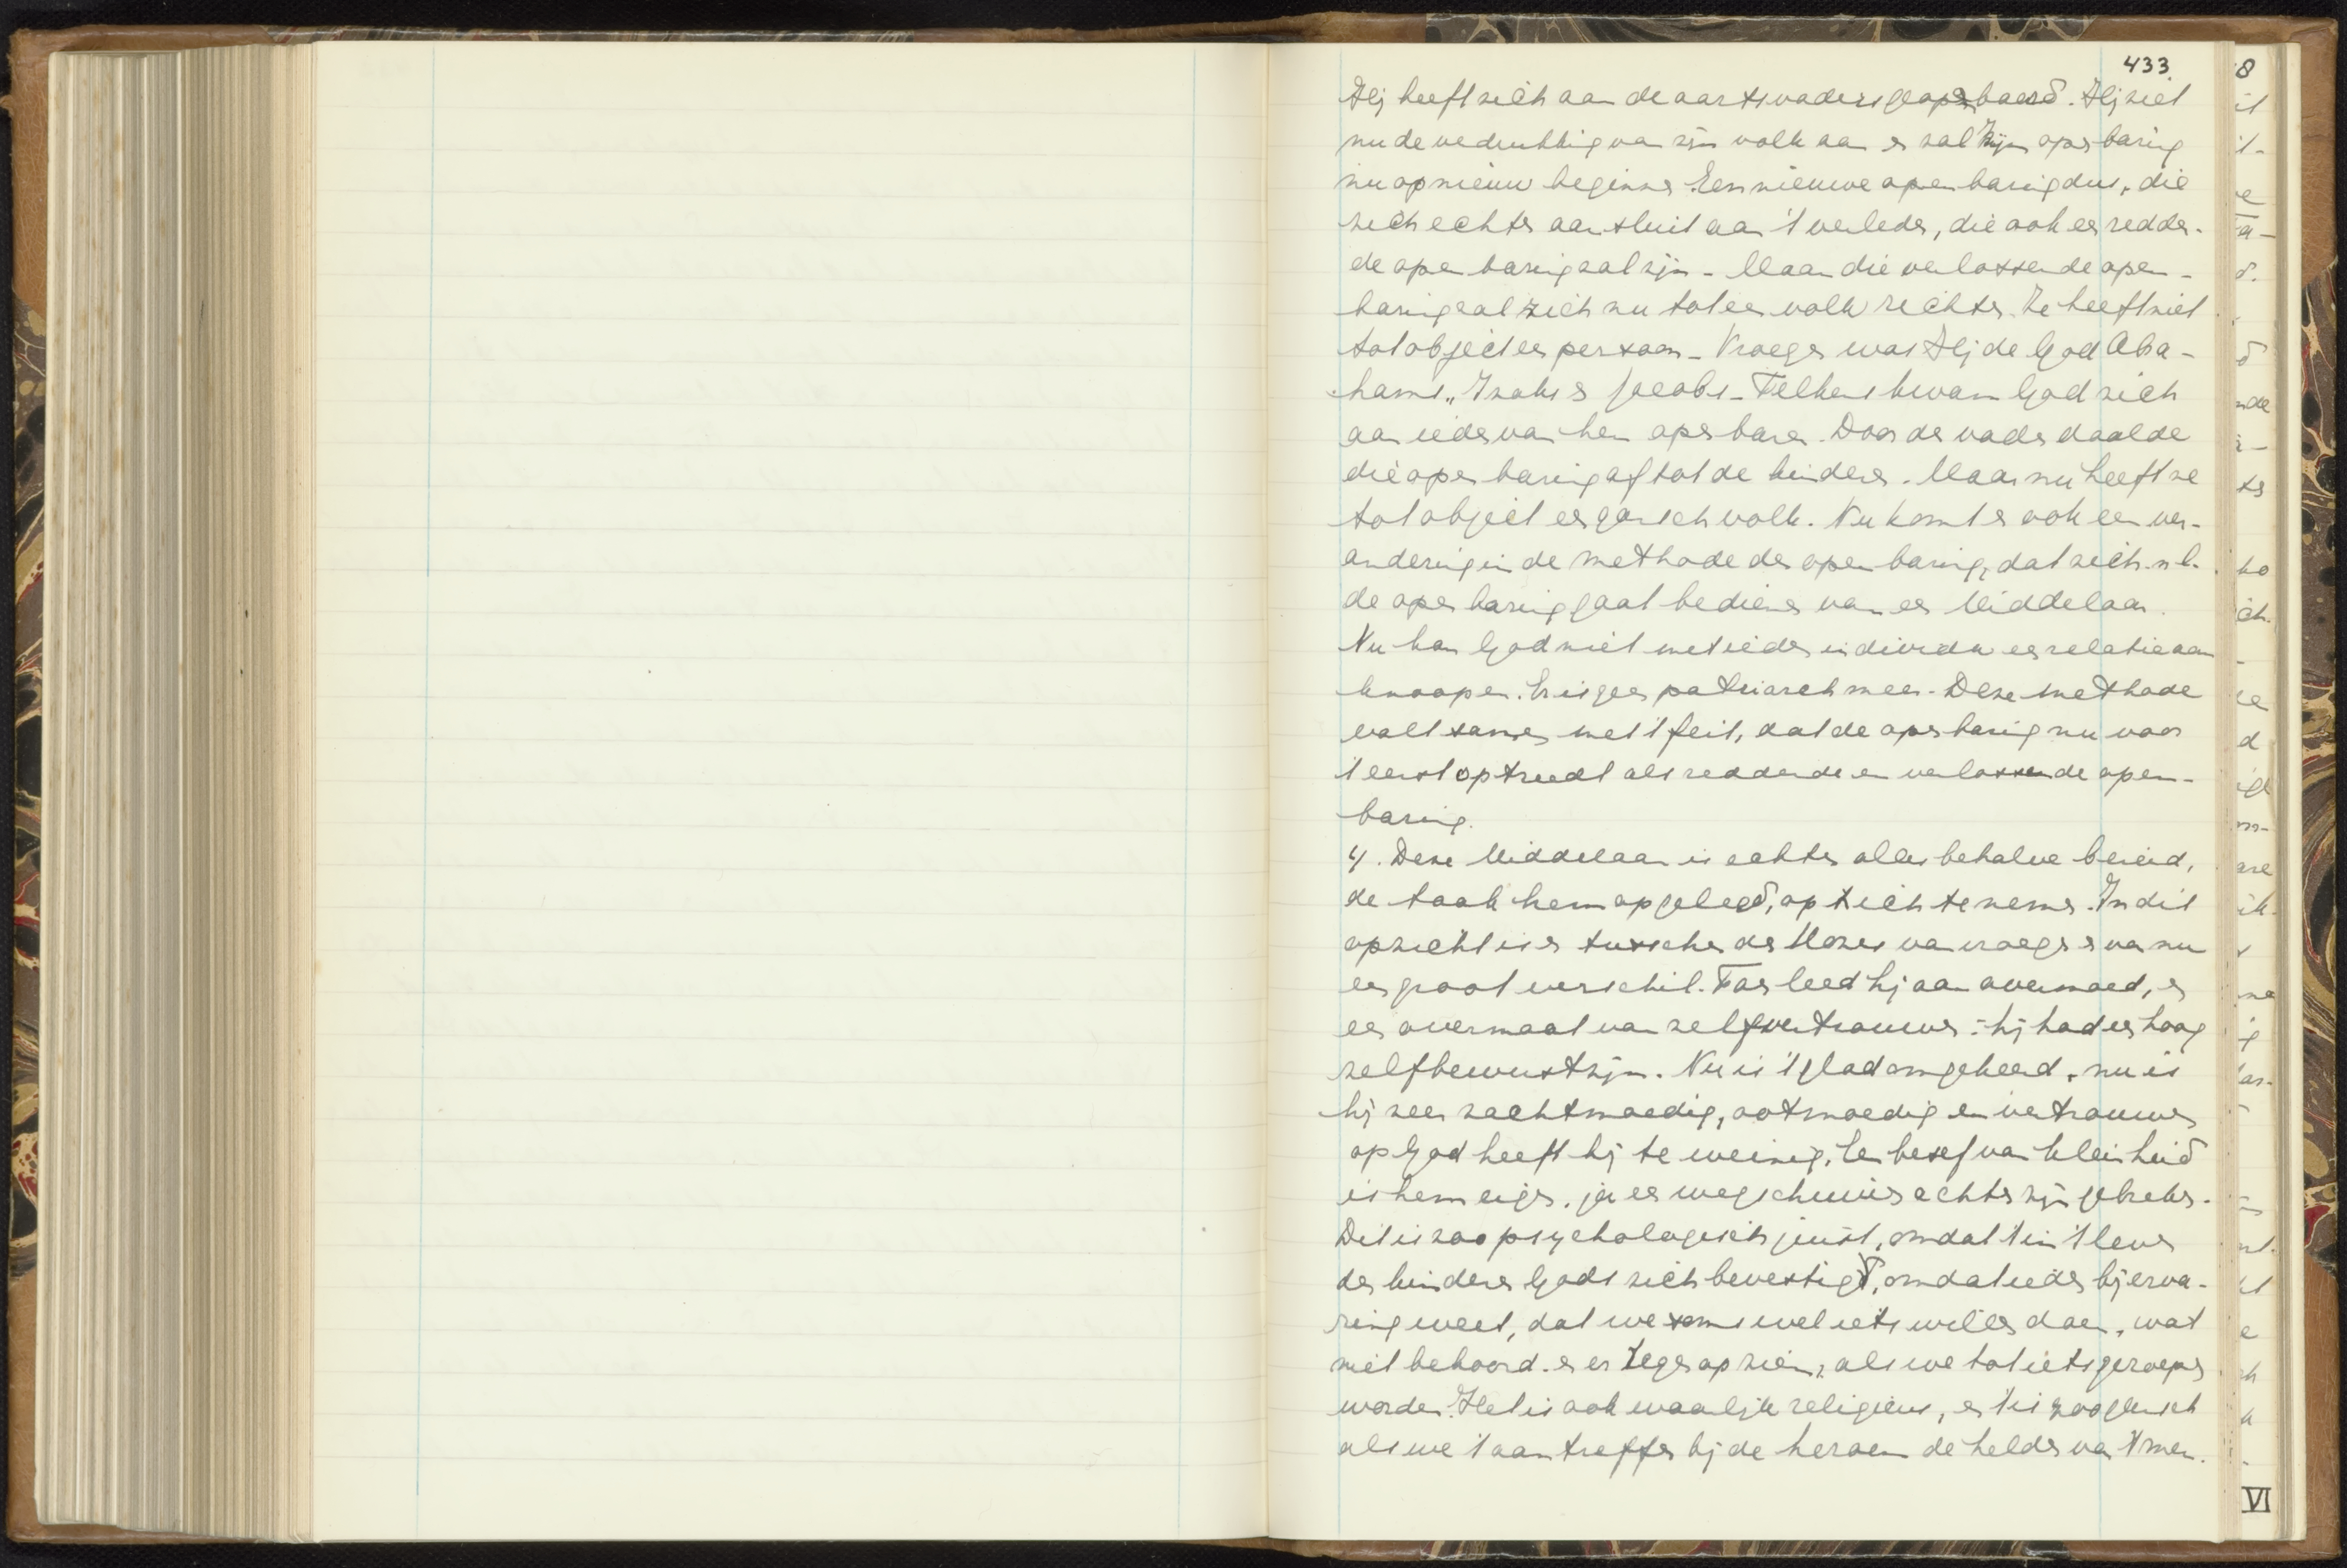 433
Hij heeft zich aan de aartsvaders geopenbaard. Hij ziet
nu de verdrukking van zijn volk aan en zal Zijn openbaring
nu opnieuw beginnen. Een nieuwe openbaring dus, die
zich echter aansluit aan 't verleden, die ook een redden-
de openbaring zal zijn - Maar die verlossende open-
baring zal zich nu tot een volk richten. Ze heeft niet
tot object een persoon - Vroeger was Hij de God Abra-
hams, Izaks en Jacobs - Telkens kwam God zich
aan ieder van hen openbaren. Door de vader daalde
die openbaring af tot de kinderen. Maar nu heeft ze
tot object een gansch volk. Nu komt er ook een ver-
andering in de methode der openbaring, dat zich n.l.
de openbaring gaat bedienen van een Middelaar.
Nu kan God niet met ieder individu een relatie aan
knoopen. Er is geen patriarch meer. Deze methode
valt samen met 't feit, dat de openbaring nu voor
't eerst optreedt als reddende en verlossende open-
baring.
4. Deze Middelaar is echter alles behalve bereid,
de taak hem opgelegd, op zich te nemen. In dit
opzicht is er tusschen de Mozes van vroeger en van nu
een groot verschil. Toen leed hij aan overmoed, en
een overmaat van zelfvertrouwen: hij had een hoog
zelfbewustzijn. Nu is 't glad omgekeerd, nu is
hij zeer zachtmoedig, ootmoedig en vertrouwen
op God heeft hij te weinig. Een besef van kleinheid
is hem eigen, ja een wegschuilen achter zijn gebreken.
Dit is zoo psychologisch juist, omdat 't in 't leven
der kinderen Gods zich bevestigt, omdat ieder bij erva-
ring weet, dat we soms wel iets willen doen, wat
niet behoord en er tegen opzien, als we tot iets geroepen
worden. Het is ook waarlijk religieus, en 't is zoo
als we 't aantreffen bij de heroen de helden van 't men-
8
VI